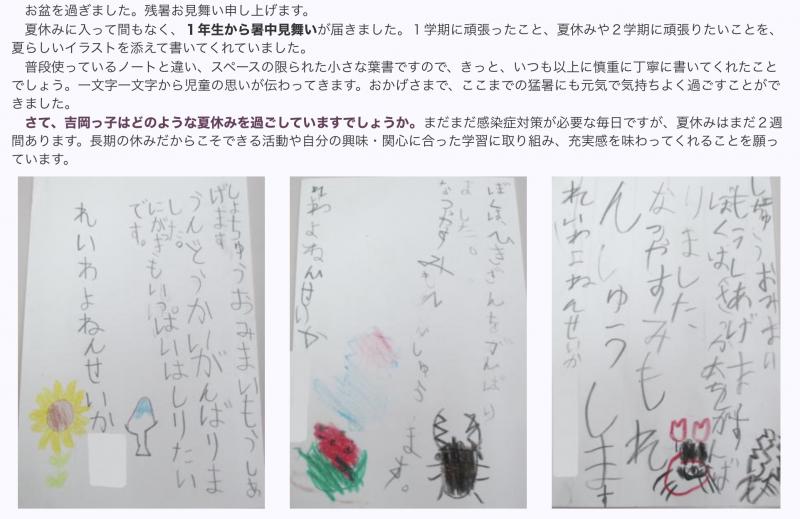 お盆を過ぎました。残暑お見舞い申し上げます。
夏休みに入って間もなく、１年生から暑中見舞いが届きました。１学期に頑張ったこと、夏休みや２学期に頑張りたいことを、
夏らしいイラストを添えて書いてくれていました。
普段使っているノートと違い、スペースの限られた小さな葉書ですので、きっと、いつも以上に慎重に丁寧に書いてくれたこと
でしょう。一文字一文字から児童の思いが伝わってきます。おかげさまで、ここまでの猛暑にも元気で気持ちよく過ごすことがで
きました。
さて、吉岡っ子はどのような夏休みを過ごしていますでしょうか。まだまだ感染症対策が必要な毎日ですが、夏休みはまだ２週
間あります。長期の休みだからこそできる活動や自分の興味・関心に合った学習に取り組み、充実感を味わってくれることを願っ
ています。
しょちゅうおみまいもうしあ
げます。
うんどうかいがんばりま
した。
にがぎもいっぱいはしりたい
です。
れいわよねんせいか
ぼくは、ひきざんをがんばり
ました。
なつやすみ
しゅう
ます。
れいわよねんせいか
おみまい
もうしあげます
ぼくは
がんば
りました、
なつやすみもれ
んしゅうします
れいわよねんせいか